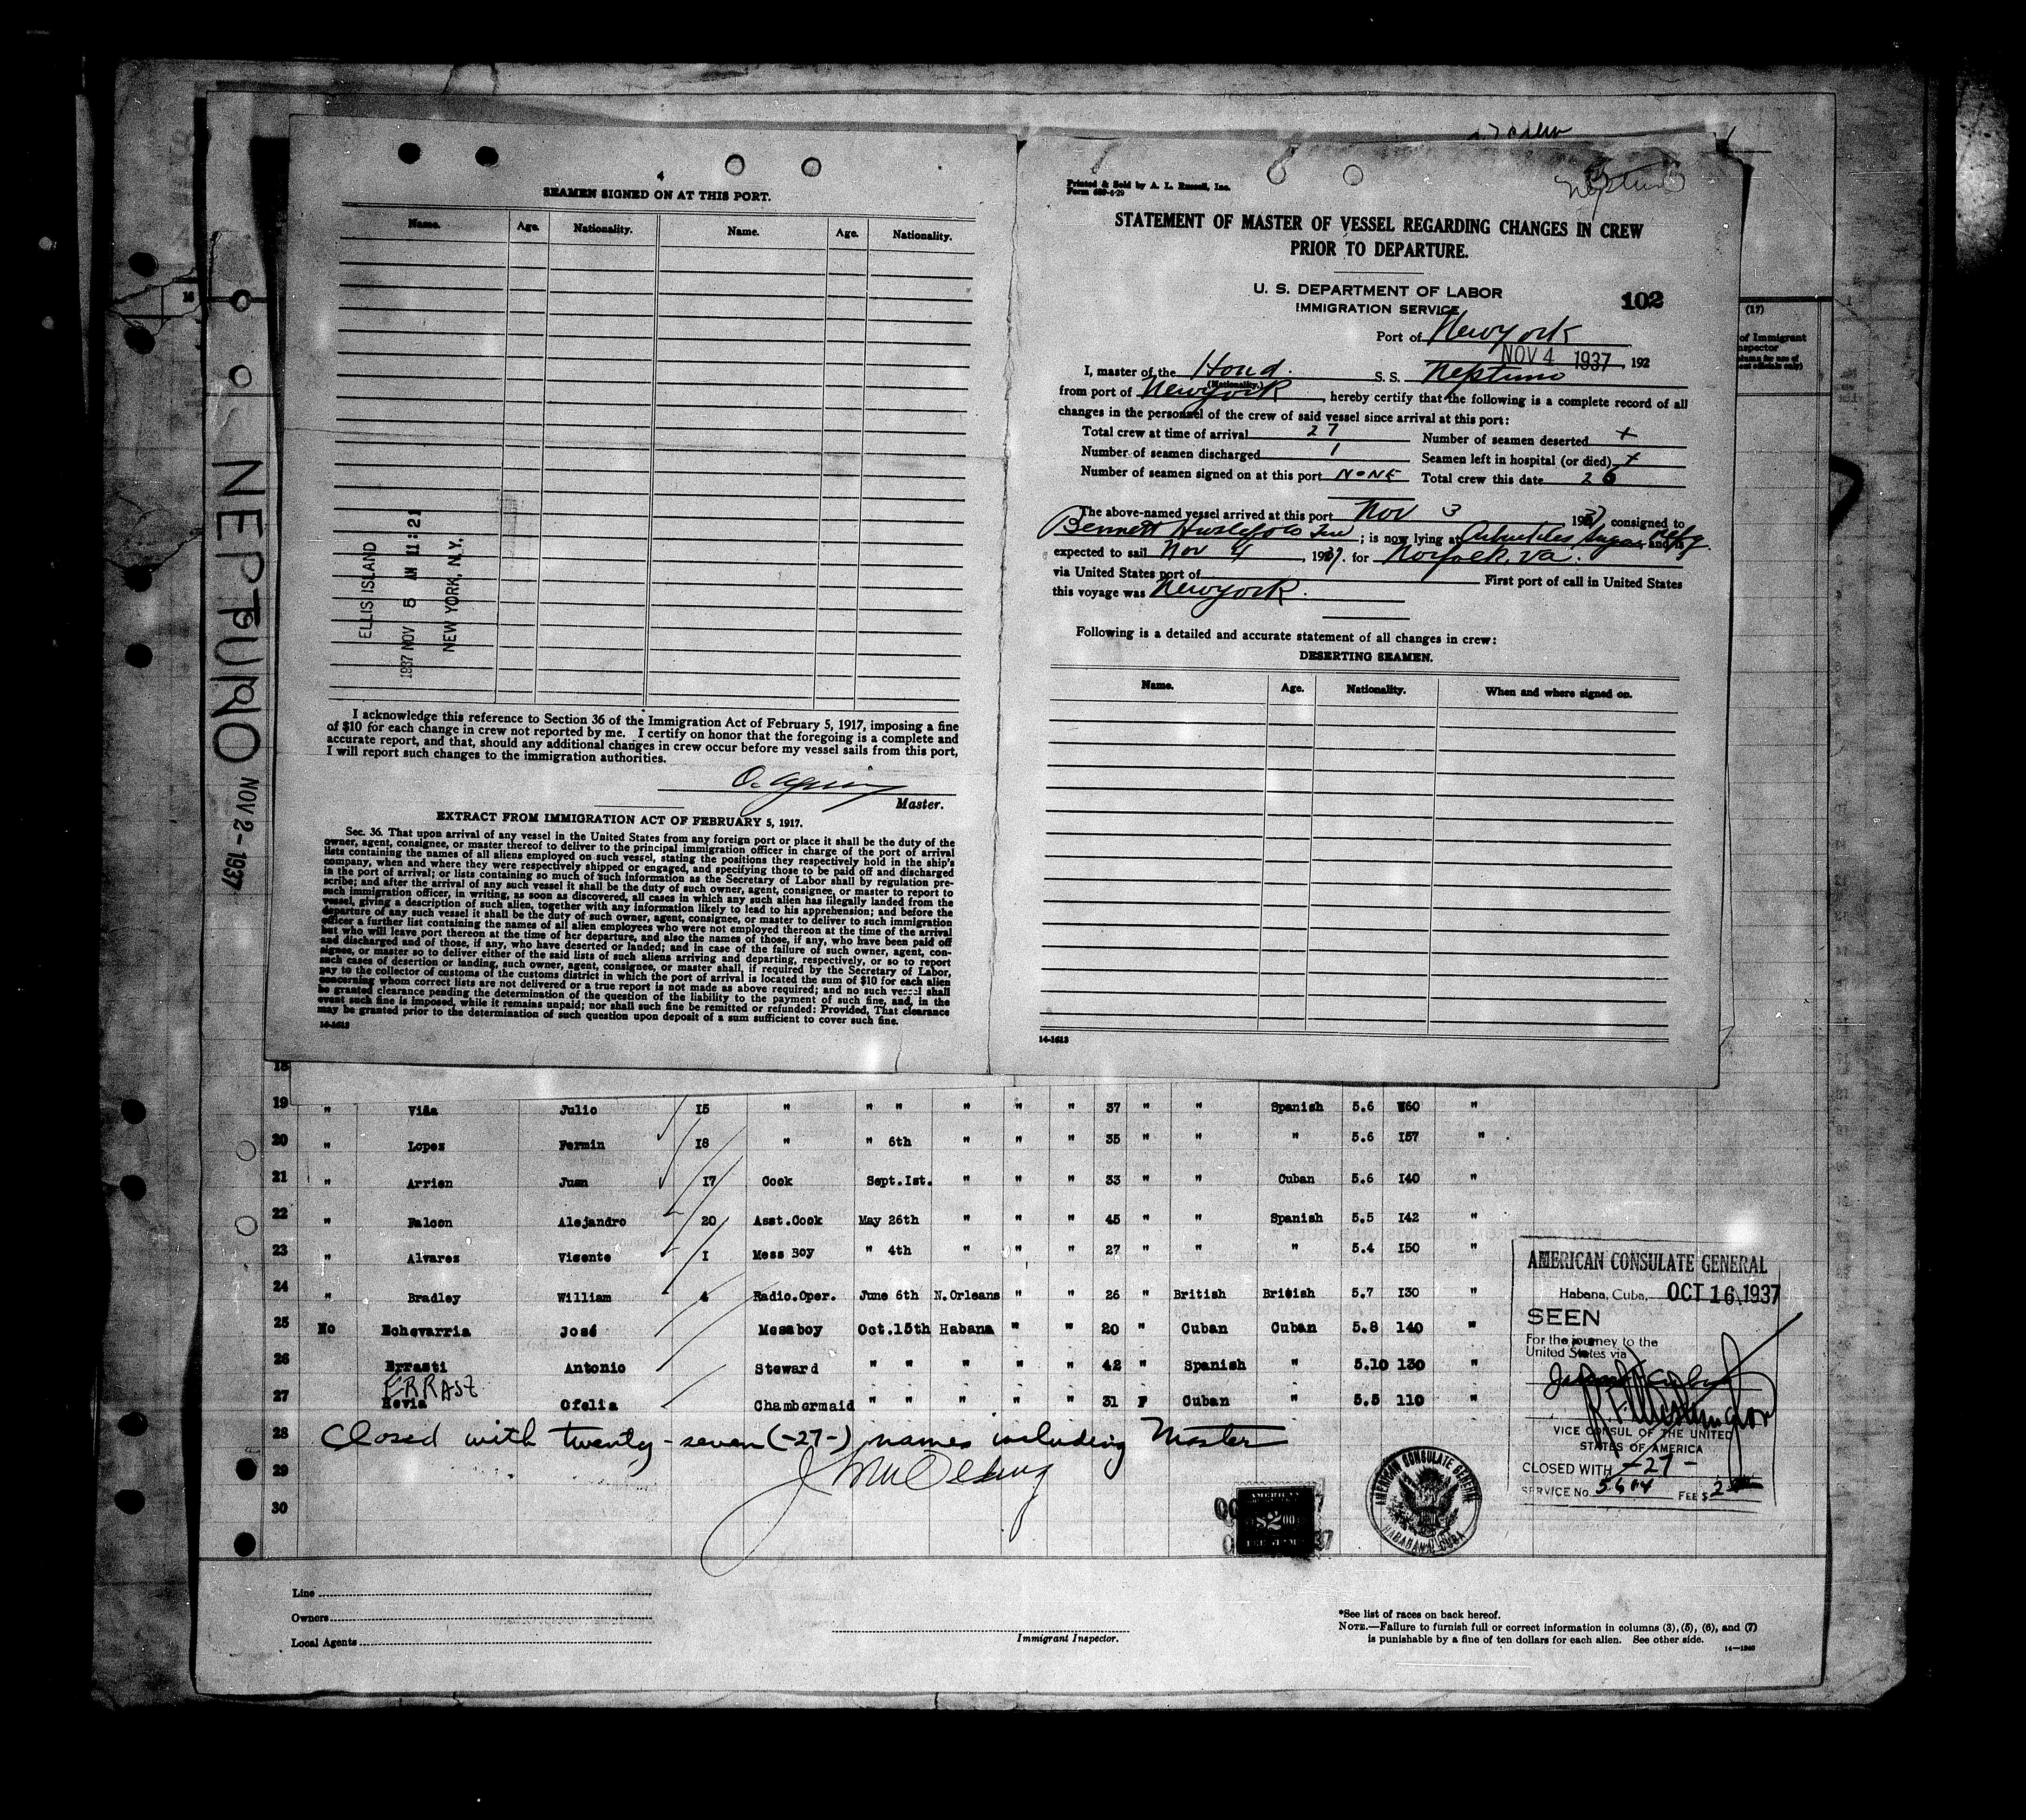 NEPTUNO NOV 2 - 1937
4
SEAMEN SIGNED ON AT THIS PORT.
Name. Age. Nationality. Name. Age. Nationality.
ELLIS ISLAND
1937 NOV 5 AM 11:21
NEW YORK, N.Y.
I acknowledge this reference to Section 36 of the Immigration Act of February 5, 1917, imposing a fine
of $10 for each change in crew not reported by me. I certify on honor that the foregoing is a complete and
accurate report, and that, should any additional changes in crew occur before my vessel sails from this port,
I will report such changes to the immigration authorities.
Master.
EXTRACT FROM IMMIGRATION ACT OF FEBRUARY 5, 1917.
Sec. 36. That upon arrival of any vessel in the United States from any foreign port or place it shall be the duty of the
owner, agent, consignee, or master thereof to deliver to the principal immigration officer in charge of the port of arrival
lists containing the names of all aliens employed on such vessel, stating the positions they respectively hold in the ship's
company, when and where they were respectively shipped or engaged, and specifying those to be paid off and discharged
in the port of arrival; or lists containing so much of such information as the Secretary of Labor shall by regulation pre-
scribe; and after the arrival of any such vessel it shall be the duty of such owner, agent, consignee, or master to report to
such immigration officer, in writing, as soon as discovered, all cases in which any such alien has illegally landed from the
vessel, giving a description of such alien, together with any information likely to lead to his apprehension; and before the
departure of any such vessel it shall be the duty of such owner, agent, consignee, or master to deliver to such immigration
officer a further list containing the names of all alien employees who were not employed thereon at the time of the arrival
but who will leave port thereon at the time of her departure, and also the names of those, if any, who have been paid off
and discharged and of those, if any, who have deserted or landed; and in case of the failure of such owner, agent, con-
signee, or master so to deliver either of the said lists of such aliens arriving and departing, respectively, or so to report
such cases of desertion or landing, such owner, agent, consignee, or master shall, if required by the Secretary of Labor,
pay to the collector of customs of the customs district in which the port of arrival is located the sum of $10 for each alien
concerning whom correct lists are not delivered or a true report is not made as above required; and no such vessel shall
be granted clearance pending the determination of the question of the liability to the payment of such fine, and, in the
event such fine is imposed, while it remains unpaid; nor shall such fine be remitted or refunded: Provided, That clearance
may be granted prior to the determination of such question upon deposit of a sum sufficient to cover such fine.
14-1613
Neptuno
Printed & Sold by A. L. Russell, Inc.
Form 689-6-29
STATEMENT OF MASTER OF VESSEL REGARDING CHANGES IN CREW
PRIOR TO DEPARTURE.
U. S. DEPARTMENT OF LABOR
IMMIGRATION SERVICE
102
Port of New york
NOV 4 1937, 192
I, master of the Hond. S. S. Neptuno
(Nationality.)
from port of New york, hereby certify that the following is a complete record of all
changes in the personnel of the crew of said vessel since arrival at this port:
Total crew at time of arrival 27 Number of seamen deserted +
Number of seamen discharged 1 Seamen left in hospital (or died) +
Number of seamen signed on at this port NONE Total crew this date 26
The above-named vessel arrived at this port Nov 3 1937, consigned to
Bennett ; is now lying at Sugar and is
expected to sail Nov 4, 1937. for Norfolk, Va.
via United States port of First port of call in United States
this voyage was New york.
Following is a detailed and accurate statement of all changes in crew:
DESERTING SEAMEN.
Name. Age. Nationality. When and where signed on.
14-1613
(17)
of Immigrant
18
19 " Viña Julio 15 " " " " " " 37 " " Spanish 5.6 160 "
20 " Lopez Fermin 18 " " 6th " " " 35 " " " 5.6 157 "
21 " Arrien Juan 17 Cook Sept.1st. " " " 33 " " Cuban 5.6 140 "
22 " Falcon Alejandro 20 Asst.Cook May 26th " " " 45 " " Spanish 5.5 142 "
23 " Alvarez Vicente 1 Mess Boy " 4th " " " 27 " " " 5.4 150 "
24 " Bradley William 4 Radio.Oper. June 6th N.Orleans " " 26 " British British 5.7 130 "
25 No Echevarria José Messboy Oct.15th Habana " " 20 " Cuban Cuban 5.8 140 "
26 Errasti Antonio Steward " " " " " 42 " Spanish " 5.10 130 "
ERRASZ
27 Hevia Ofelia Chambermaid " " " " " 31 F Cuban " 5.5 110 "
28 Closed with twenty-seven (-27-) names including Master
29
30
AMERICAN CONSULATE GENERAL
Habana, Cuba, OCT 16, 1937
SEEN
For the journey to the
United States via
VICE CONSUL OF THE UNITED
STATES OF AMERICA
CLOSED WITH -27-
SERVICE No. 5604 FEE $2
AMERICAN CONSULATE GENERAL
HABANA, CUBA
AMERICAN
$2.00
Line
Owners
Local Agents
Immigrant Inspector.
*See list of races on back hereof.
NOTE.—Failure to furnish full or correct information in columns (3), (5), (6), and (7)
is punishable by a fine of ten dollars for each alien. See other side.
14—1240